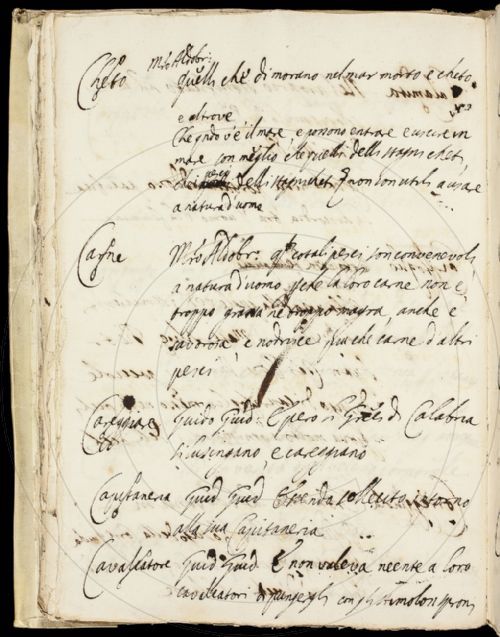 Cheto Mro Aldobr:
quelli che dimorano nel mar morto e cheto
e altrove
Che quando v'è il mare e possono entrare e uscire in
mare son meglio che quelli delli stagni cheti
delli stagni cheti non son utili a usare
a natura d'uomo
Carne Mro Aldobr: cotali pesci son convenevoli
a natura d'uomo che la loro carne non è
troppo grassa ne troppo magra, anche è
savorosa, e nodrisce piu che carne d'altri
pesci
Careggiare Guido Guid: E però i Greci di Calabria
lusingano, e careggiano
Capitaneria Guid Guid intorno
alla sua Capitaneria
Cavalcatore Guid Guid E non valeva neente a loro
cavalcatori pungegli con gli stimolosi sproni